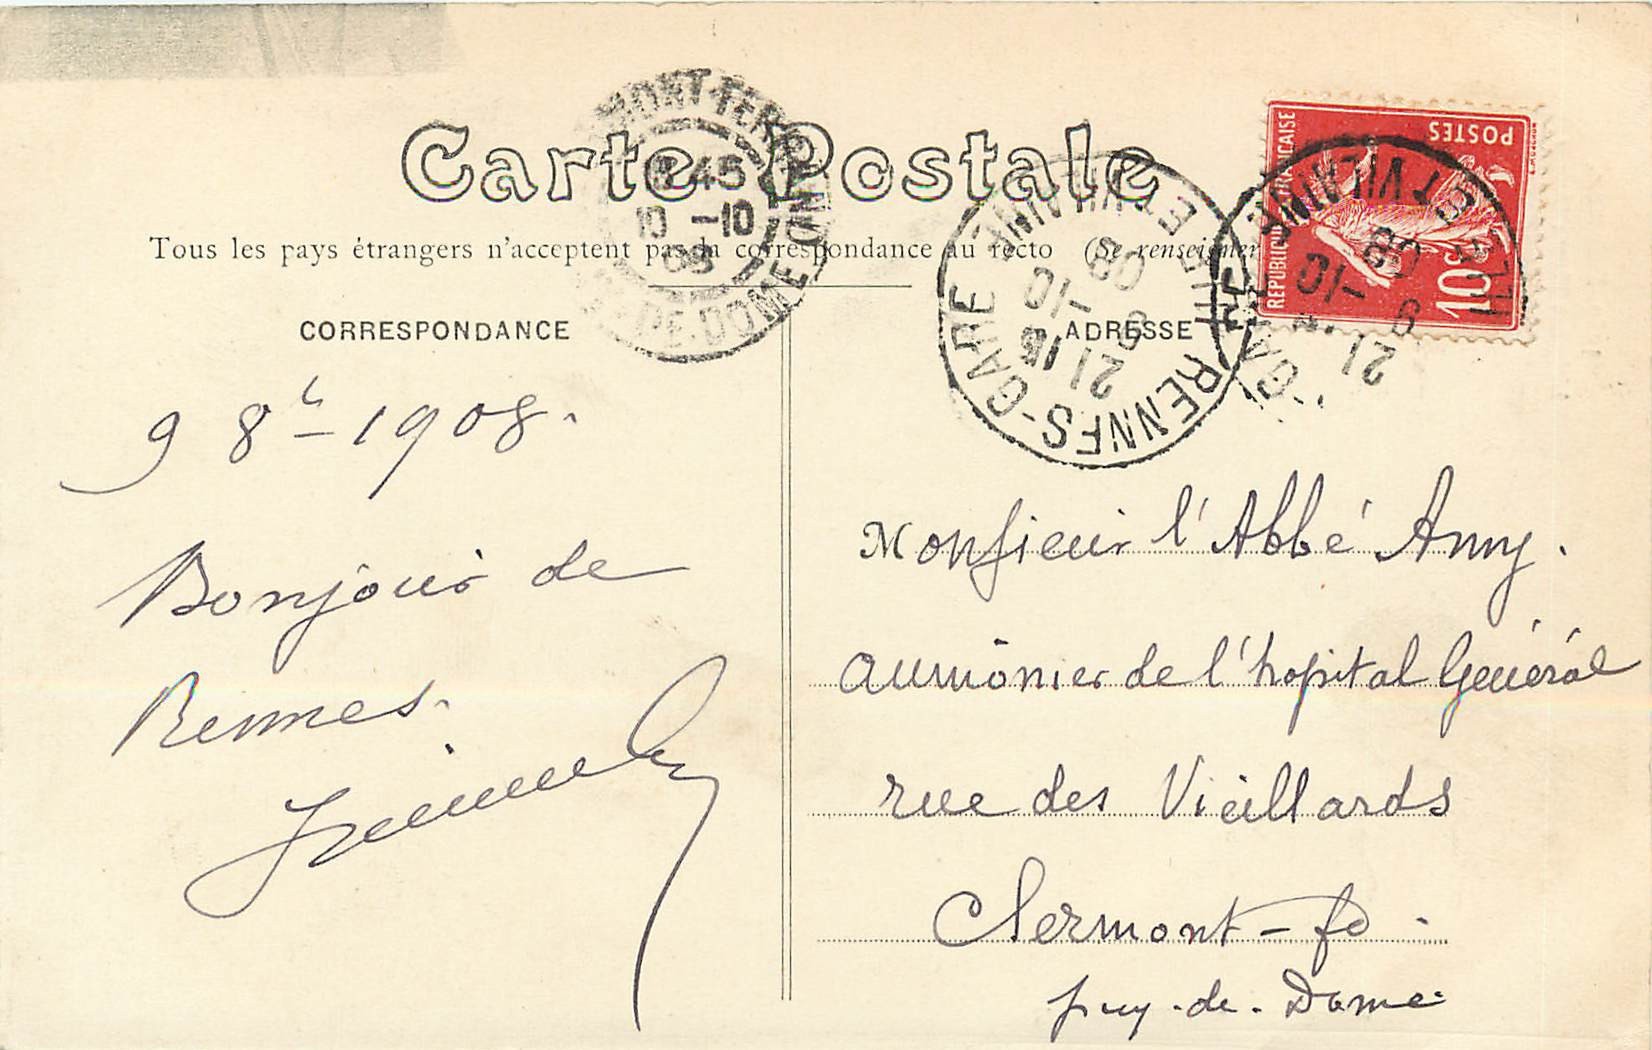 Carte Postale
Tous les pays étrangers n'acceptent pas la correspondance au recto (Se renseigner
CORRESPONDANCE
ADRESSE
RÉPUBLIQUE FRANÇAISE
POSTES
10c
18 45
10 -10
08
DE-DOME
RENNES-GARE
ILLE ET VILAINE
21 15
9 -10
08
GARE
ET VILAINE
21
9 -10
08
9 8b - 1908.
Bonjour de
Rennes.
Monsieur l'Abbé Amy.
aumônier de l'hopital Général
rue des Vieillards
Clermont-fd.
puy-de-Dome